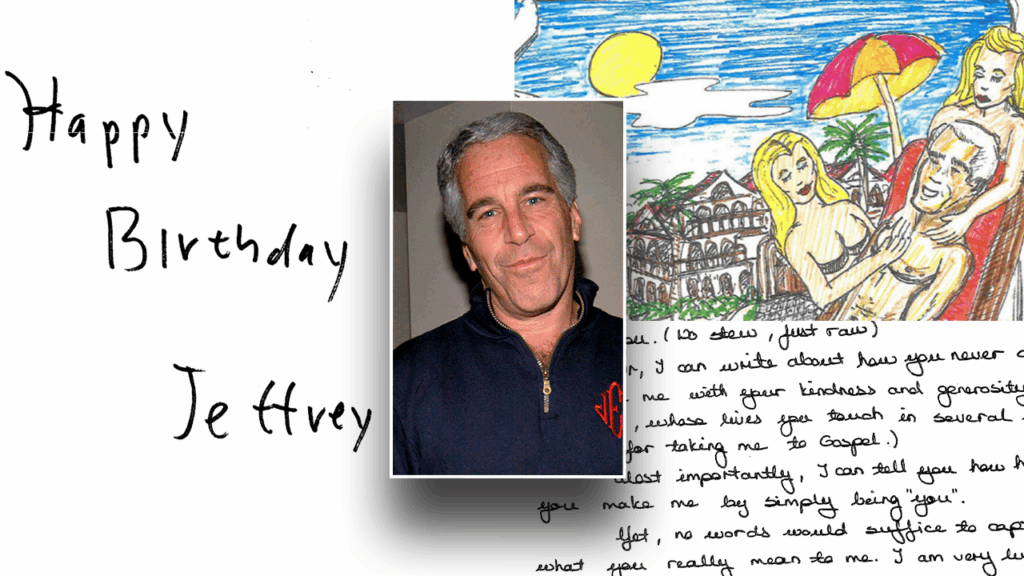 Happy
Birthday
Jeffrey
ou. (No stew, just raw)
r, I can write about how you never
me with your kindness and generosity
, whose lives you touch in several
for taking me to Gospel.)
Most importantly, I can tell you how h
you make me by simply being "you".
Yet, no words would suffice to cap
what you really mean to me. I am very lu